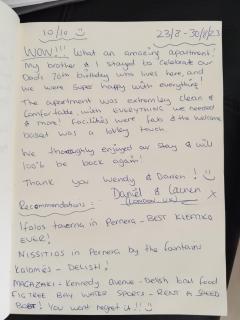 10/10 ☺ 23/8 - 30/8/23
WOW!!! What an amazing apartment!
My brother & I stayed to celebrate our
Dad's 70th birthday who lives here, and
we were super happy with everything!
The apartment was extremley clean &
comfortable, with EVERYTHING we needed
& more! Facilities were fab & the welcome
basket was a lovley touch.
We thoroughly enjoyed our stay & will
100% be back again!
Thank you Wendy & Darren! ☺
Daniel & Lauren
(LONDON UK) x
Recommendations:
Ifolas taverna in Pernera - BEST KLEFTIKO
EVER!
NISSITIOS in Pernera by the fountains
Kalamies - DELISH!
MAGAZAKI - Kennedy avenue - Delish bbq food
FIG TREE BAY WATER SPORTS - RENT A SPEED
BOAT! You wont regret it!! ☺